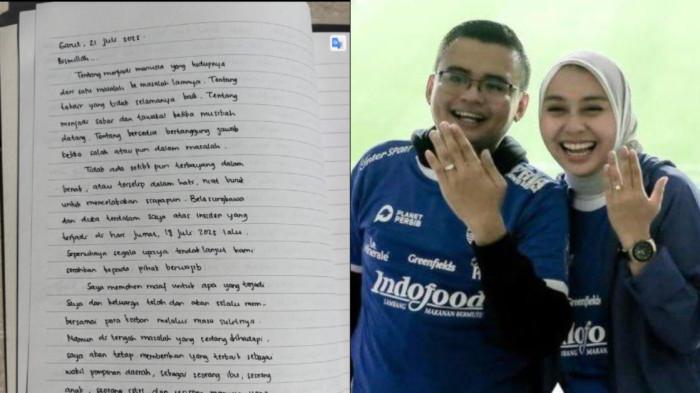 Garut, 21 Juli 2025.
Bismillah...
Tentang menjadi manusia yang hidupnya
dari satu masalah ke masalah lainnya. Tentang
takdir yang tidak selamanya baik. Tentang
menjadi sabar dan tawakal ketika musibah
datang. Tentang bersedia bertanggung jawab
ketika salah ataupun dalam masalah.
Tidak ada sedikit pun terbayang dalam
benak, atau terselip dalam hati, niat buruk
untuk mencelakakan siapapun. Belasungkawa
dan duka terdalam saya atas insiden yang
terjadi di hari Jumat, 18 Juli 2025 lalu.
Sepenuhnya segala upaya tindak lanjut kami
serahkan kepada pihak berwajib
Saya memohon maaf untuk apa yang terjadi
Saya dan keluarga telah dan akan selalu mem-
bersamai para korban melalui masa sulitnya.
Namun di tengah masalah yang sedang dihadapi,
saya akan tetap memberikan yang terbaik sebagai
wakil pimpinan daerah, sebagai seorang ibu, seorang
anak, seorang istri dan seorang yang
PLANET
PERSIB
Greenfields
Indofood
LAMBANG MAKANAN BERMUTU
Greenfields